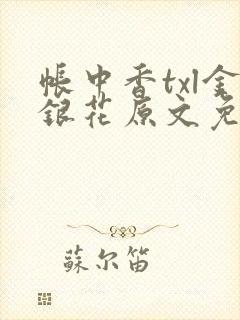 帳中香txl金
銀花原文免
蘇尔笛